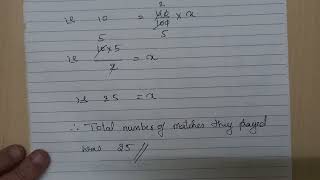 ie 10 = 40/100 × x
2
5
5
ie 10 × 5 / 2 = x
is 25 = x
∴ Total number of matches they played
was 25 //